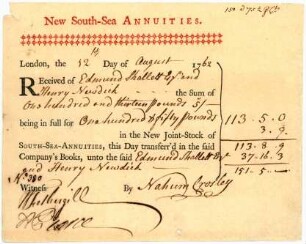 New South-Sea ANNUITIES.
London, the 12 Day of August 1762
Received of Edmund Shallett Esqr and
Henry Newdick the Sum of
One hundred and thirteen pounds 5/-
being in full for One hundred & fifty pounds
113.5.0
in the New Joint-Stock of
3.9
SOUTH-SEA-ANNUITIES, this Day transferr'd in the said
113.8.9
Company's Books, unto the said Edmund Shallett Esqr
37.16.3
and Henry Newdick
151.5.-
No 300
Witness
By Nahum Crosley